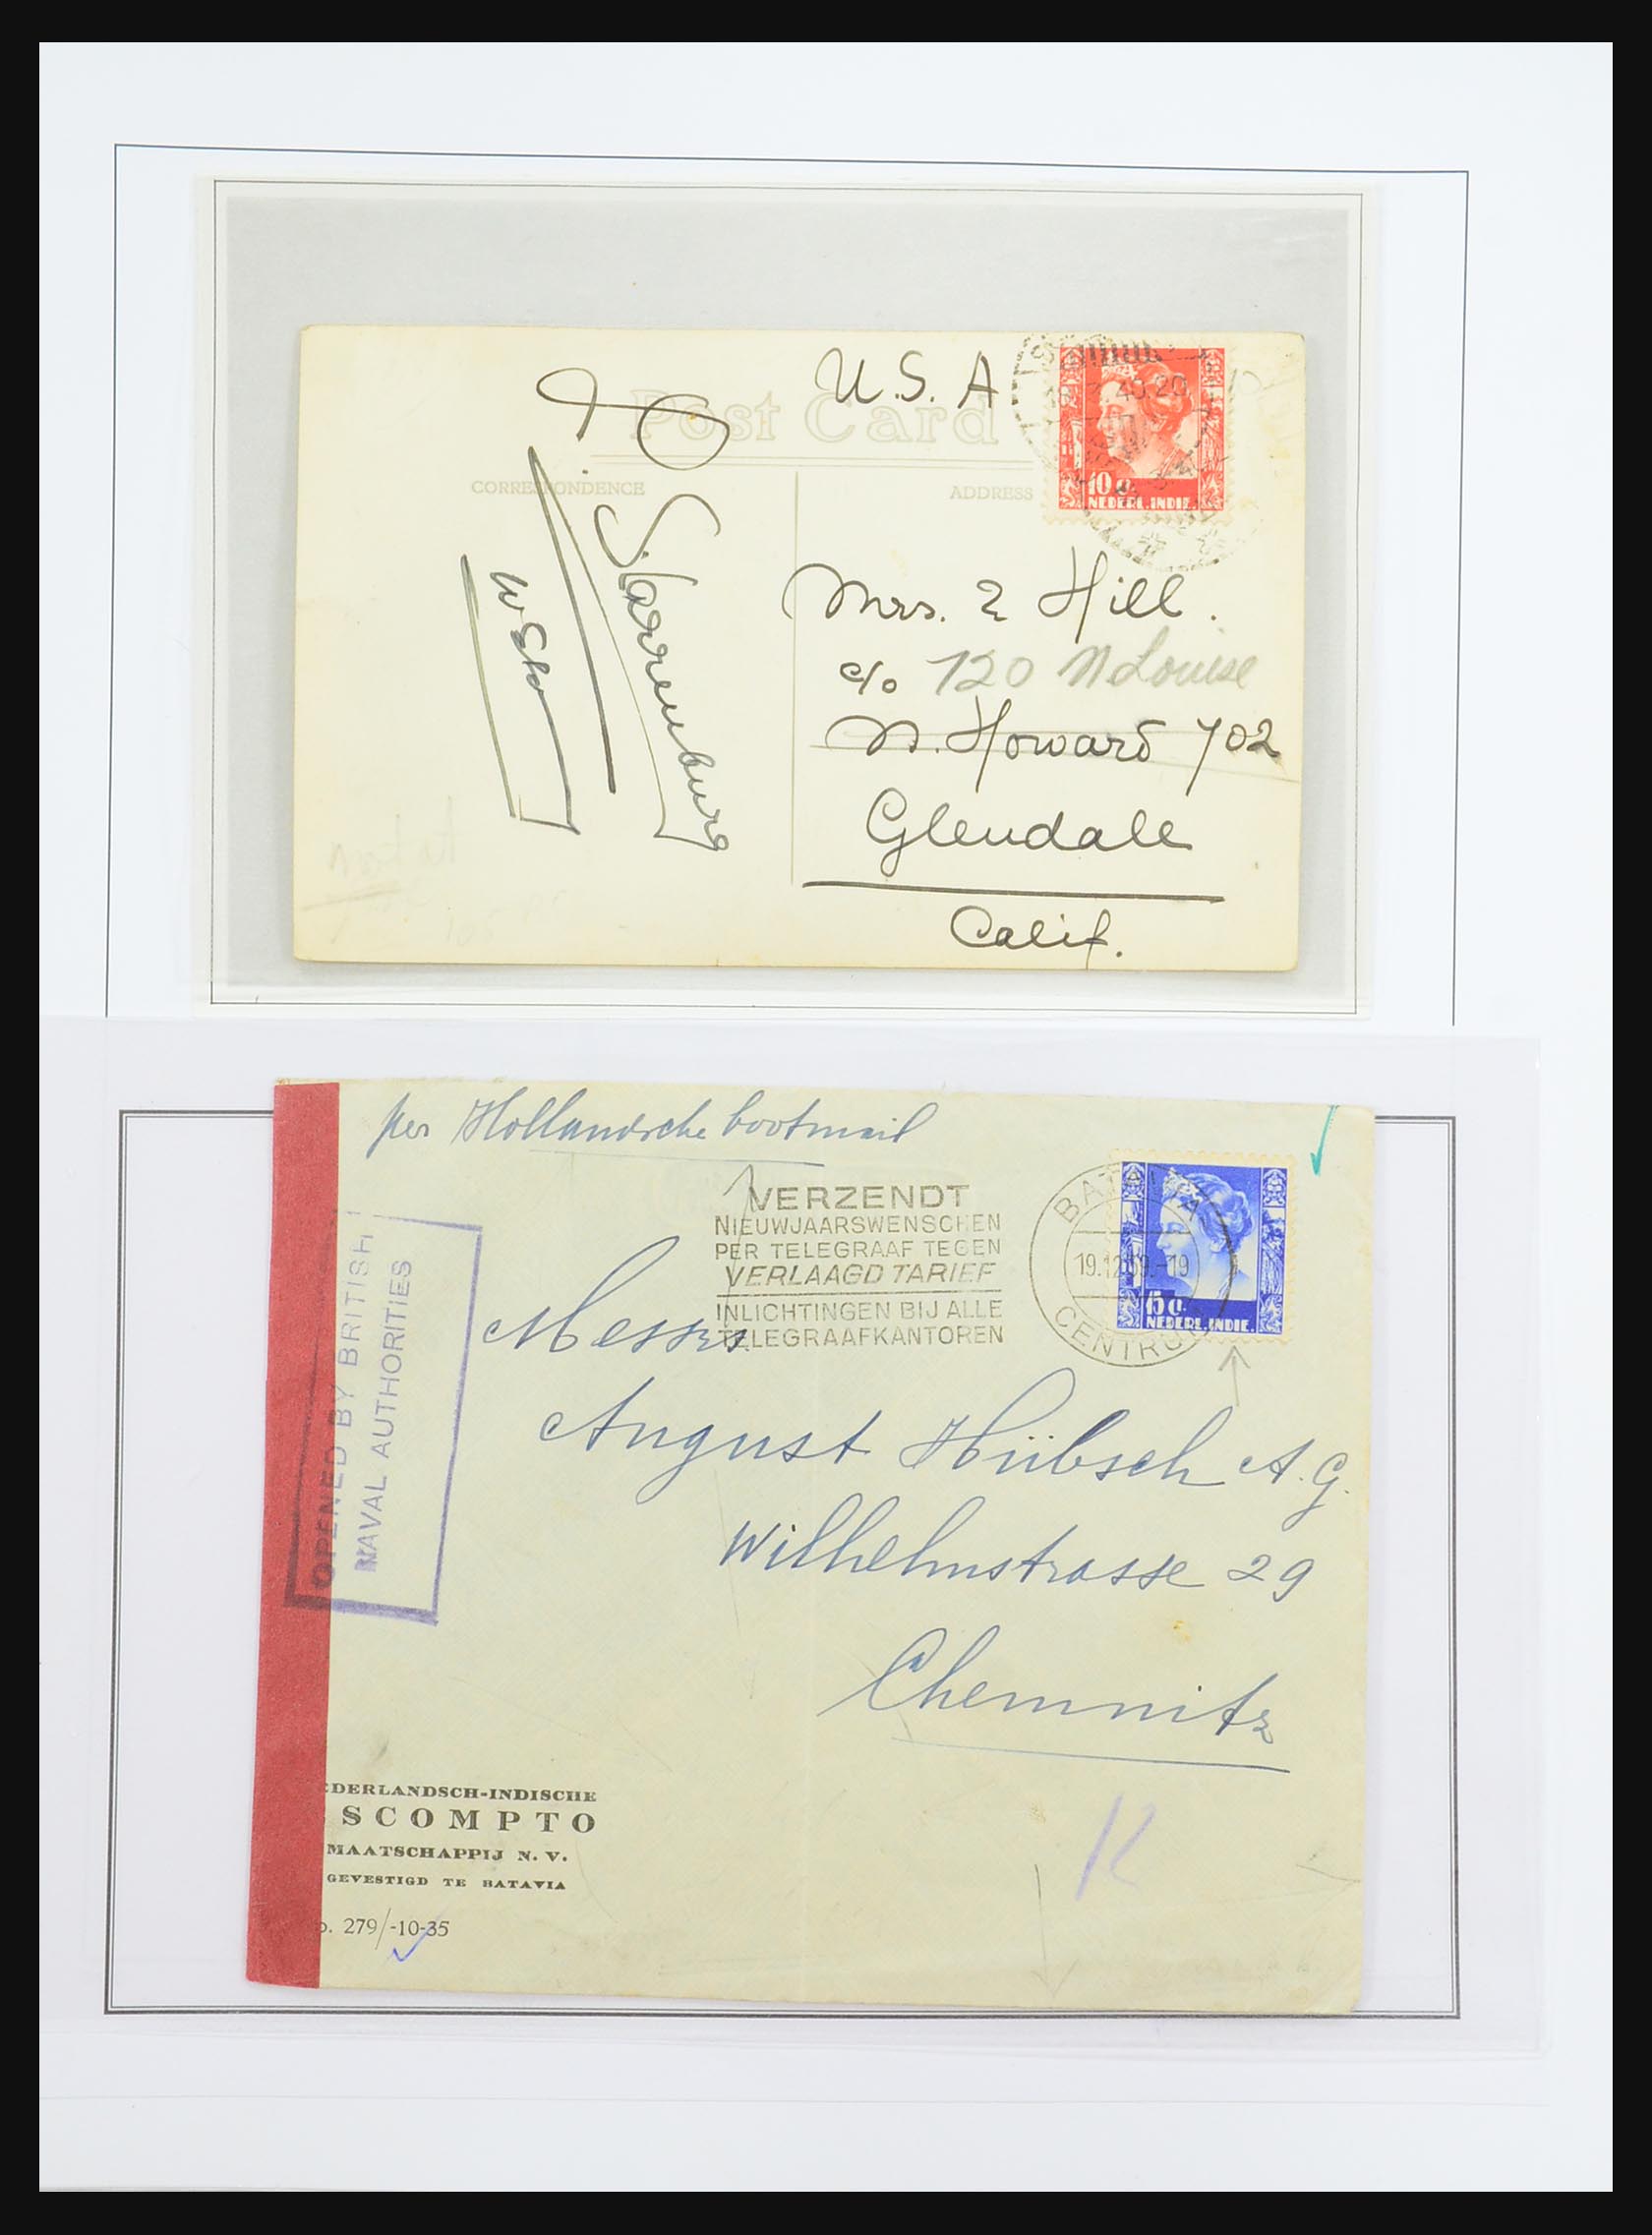 Post Card
U.S.A
CORRESPONDENCE
ADDRESS
40.20
10 c.
NEDERL. INDIE.
Starrenburg
Mrs. E Hill.
c/o 120 N Louise
N. Howard 702
Glendale
Calif.
per Hollandsche bootmail
VERZENDT
NIEUWJAARSWENSCHEN
PER TELEGRAAF TEGEN
VERLAAGD TARIEF
INLICHTINGEN BIJ ALLE
TELEGRAAFKANTOREN
BATAVIA
19.12.39.-19
CENTRUM
15 c.
NEDERL. INDIE.
OPENED BY BRITISH
NAVAL AUTHORITIES
Messrs.
August Hübsch A.G.
Wilhelmstrasse 29
Chemnitz
EDERLANDSCH-INDISCHE
SCOMPTO
MAATSCHAPPIJ N. V.
GEVESTIGD TE BATAVIA
o. 279/-10-35
K